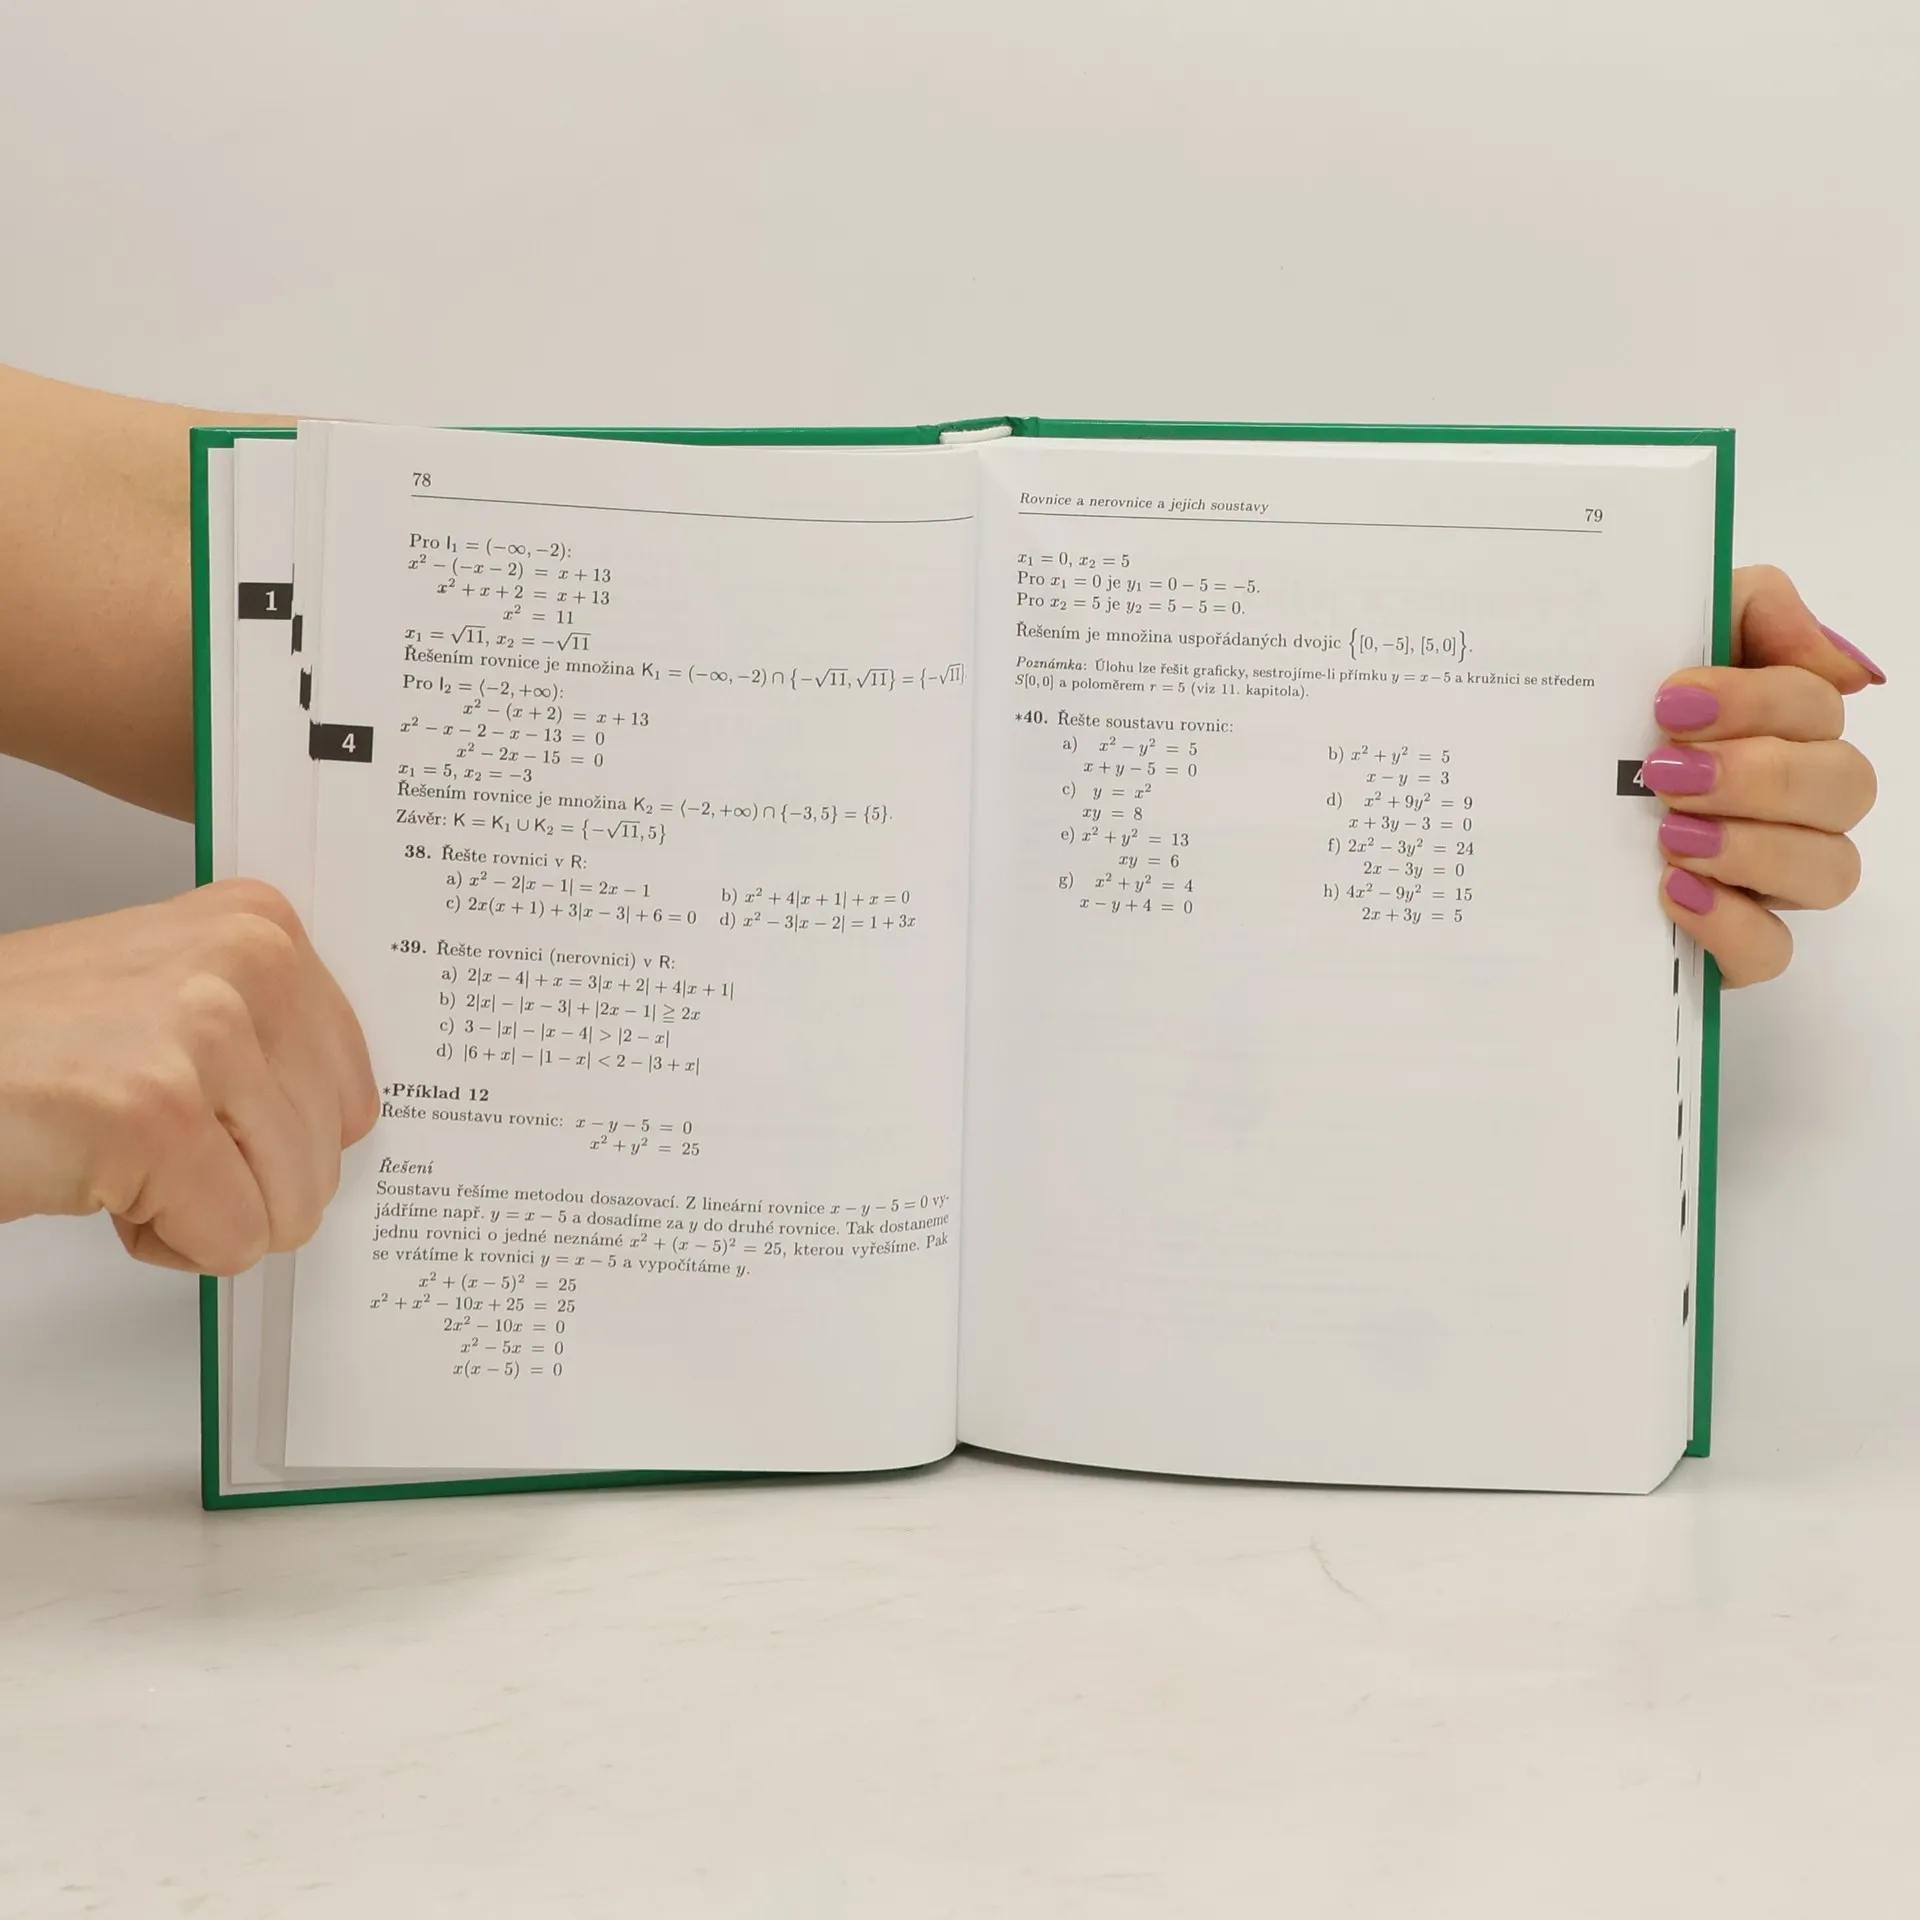 1
4
78
Pro I₁ = (−∞, −2):
x² − (−x − 2) = x + 13
x² + x + 2 = x + 13
x² = 11
x₁ = √11, x₂ = −√11
Řešením rovnice je množina K₁ = (−∞, −2) ∩ {−√11, √11} = {−√11}
Pro I₂ = ⟨−2, +∞):
x² − (x + 2) = x + 13
x² − x − 2 − x − 13 = 0
x² − 2x − 15 = 0
x₁ = 5, x₂ = −3
Řešením rovnice je množina K₂ = ⟨−2, +∞) ∩ {−3, 5} = {5}.
Závěr: K = K₁ ∪ K₂ = {−√11, 5}
38. Řešte rovnici v R:
a) x² − 2|x − 1| = 2x − 1 b) x² + 4|x + 1| + x = 0
c) 2x(x + 1) + 3|x − 3| + 6 = 0 d) x² − 3|x − 2| = 1 + 3x
*39. Řešte rovnici (nerovnici) v R:
a) 2|x − 4| + x = 3|x + 2| + 4|x + 1|
b) 2|x| − |x − 3| + |2x − 1| ≧ 2x
c) 3 − |x| − |x − 4| > |2 − x|
d) |6 + x| − |1 − x| < 2 − |3 + x|
*Příklad 12
Řešte soustavu rovnic: x − y − 5 = 0
x² + y² = 25
Řešení
Soustavu řešíme metodou dosazovací. Z lineární rovnice x − y − 5 = 0 vy-
jádříme např. y = x − 5 a dosadíme za y do druhé rovnice. Tak dostaneme
jednu rovnici o jedné neznámé x² + (x − 5)² = 25, kterou vyřešíme. Pak
se vrátíme k rovnici y = x − 5 a vypočítáme y.
x² + (x − 5)² = 25
x² + x² − 10x + 25 = 25
2x² − 10x = 0
x² − 5x = 0
x(x − 5) = 0
Rovnice a nerovnice a jejich soustavy 79
x₁ = 0, x₂ = 5
Pro x₁ = 0 je y₁ = 0 − 5 = −5.
Pro x₂ = 5 je y₂ = 5 − 5 = 0.
Řešením je množina uspořádaných dvojic {[0, −5], [5, 0]}.
Poznámka: Úlohu lze řešit graficky, sestrojíme-li přímku y = x − 5 a kružnici se středem
S[0, 0] a poloměrem r = 5 (viz 11. kapitola).
*40. Řešte soustavu rovnic:
a) x² − y² = 5 b) x² + y² = 5
x + y − 5 = 0 x − y = 3
c) y = x² d) x² + 9y² = 9
xy = 8 x + 3y − 3 = 0
e) x² + y² = 13 f) 2x² − 3y² = 24
xy = 6 2x − 3y = 0
g) x² + y² = 4 h) 4x² − 9y² = 15
x − y + 4 = 0 2x + 3y = 5
4